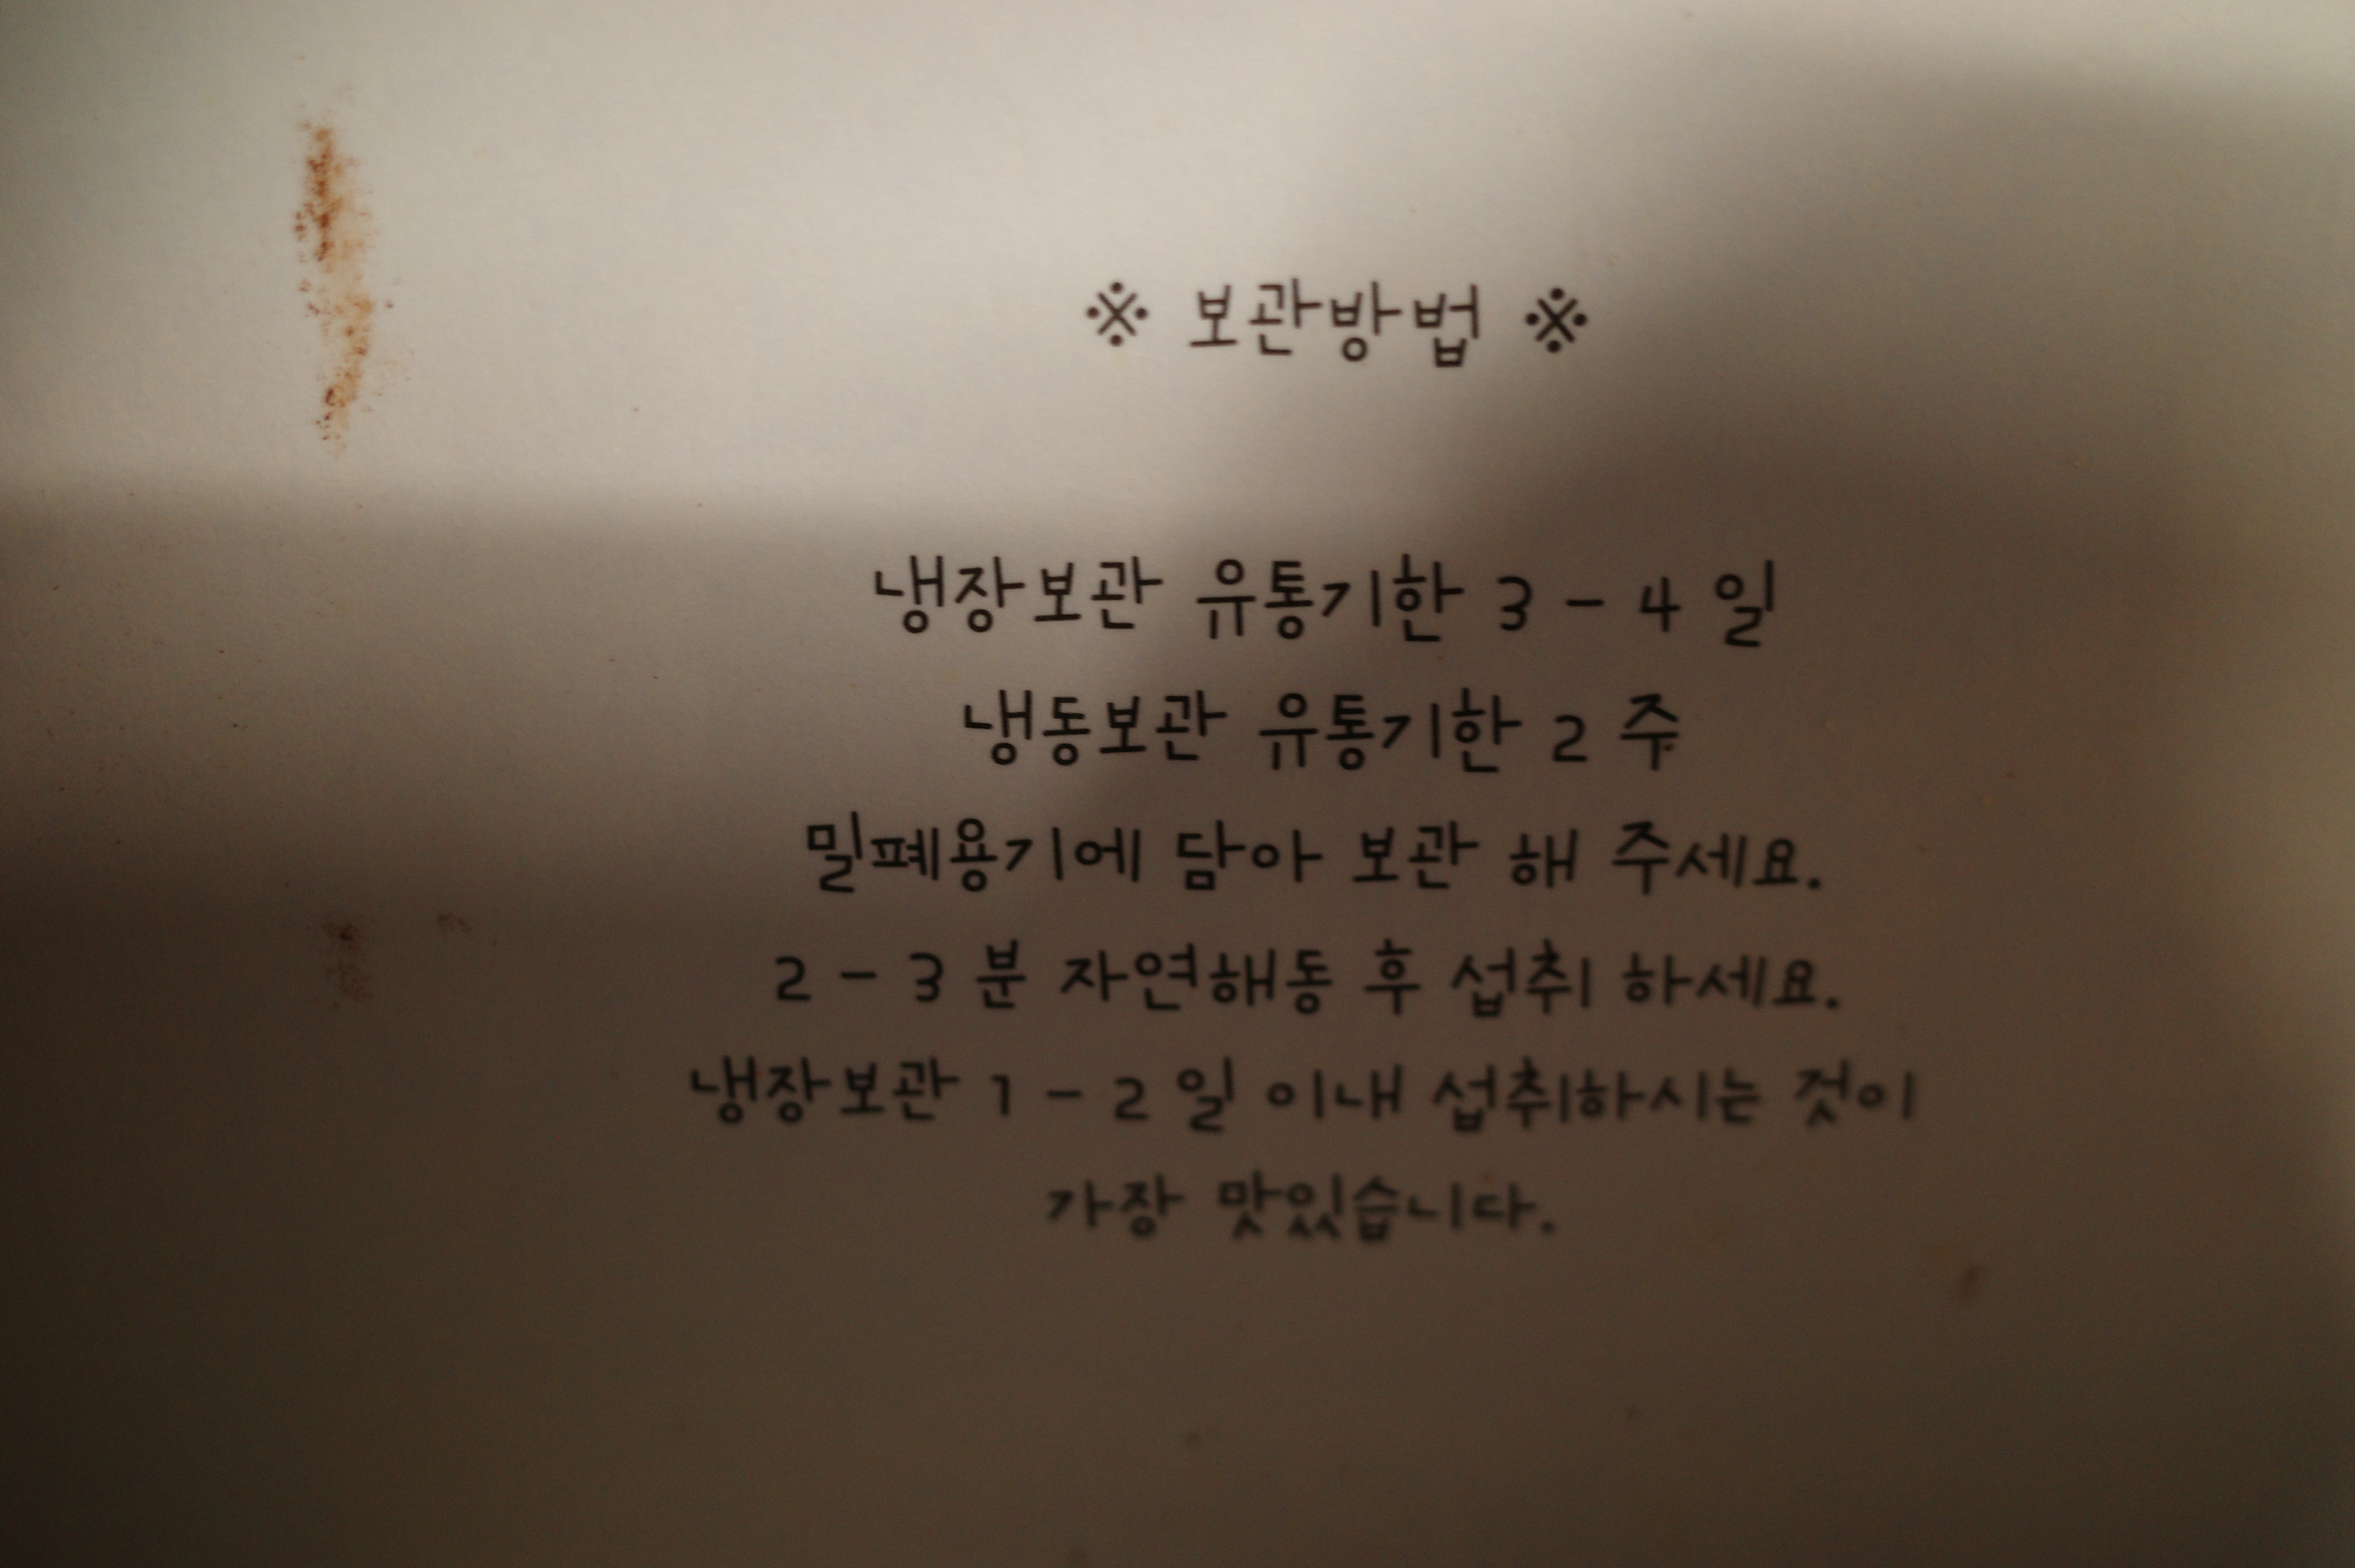 ※ 보관방법 ※
냉장보관 유통기한 3 - 4 일
냉동보관 유통기한 2 주
밀폐용기에 담아 보관 해 주세요.
2 - 3 분 자연해동 후 섭취 하세요.
냉장보관 1 - 2 일 이내 섭취하시는 것이
가장 맛있습니다.